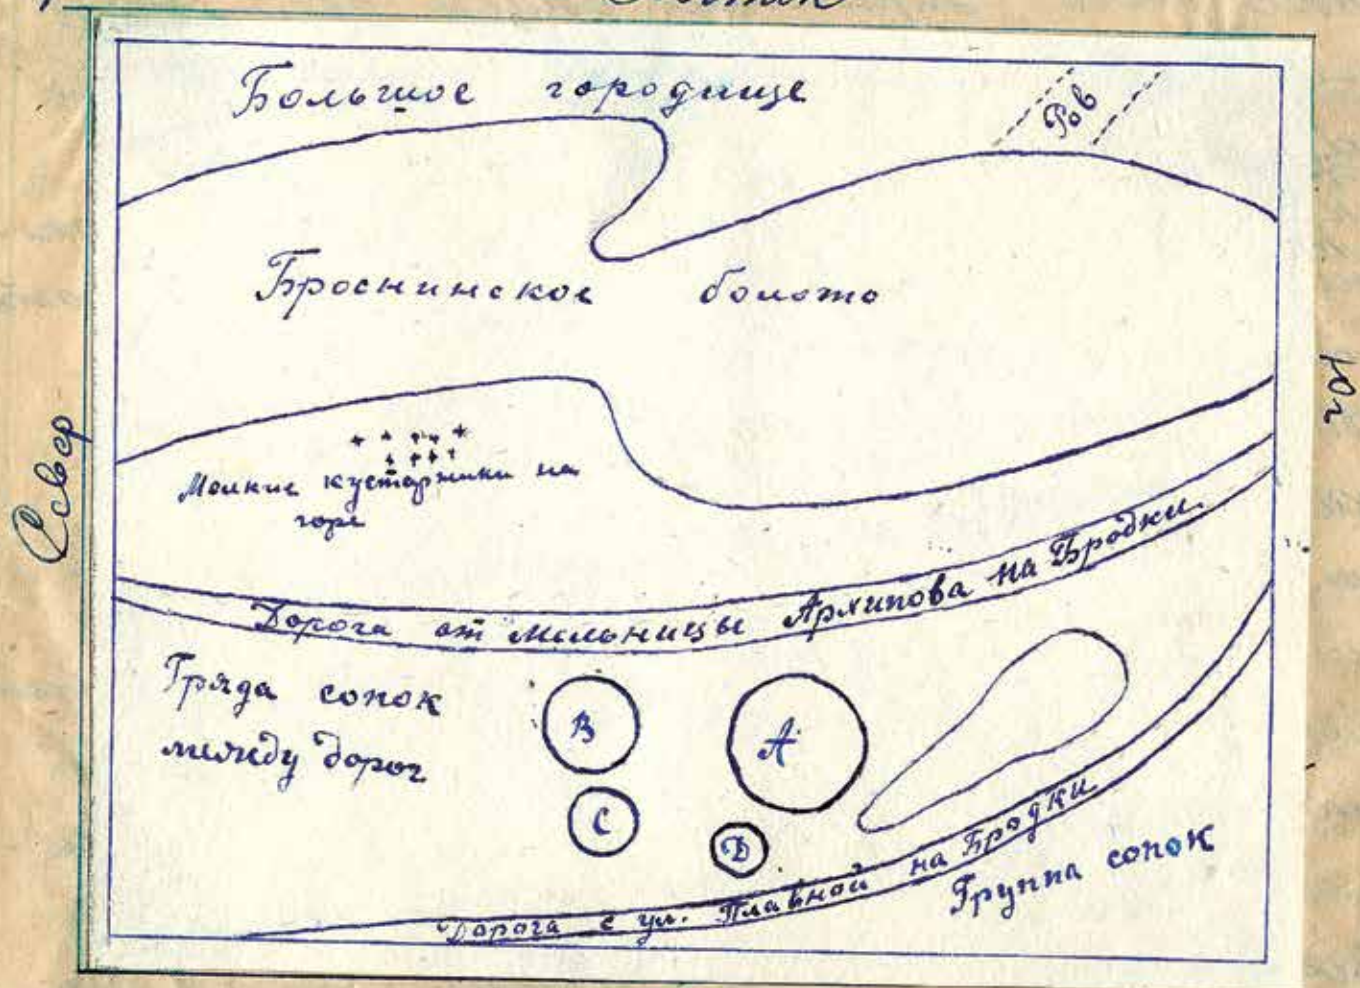 Большое городище
Ров
Броснинское болото
Север
Юг
Мелкие кустарники на
горе
Дорога от мельницы Архипова на Бродки.
Гряда сопок
между дорог
В
А
С
D
Дорога с ул. Главной на Бродки
Группа сопок